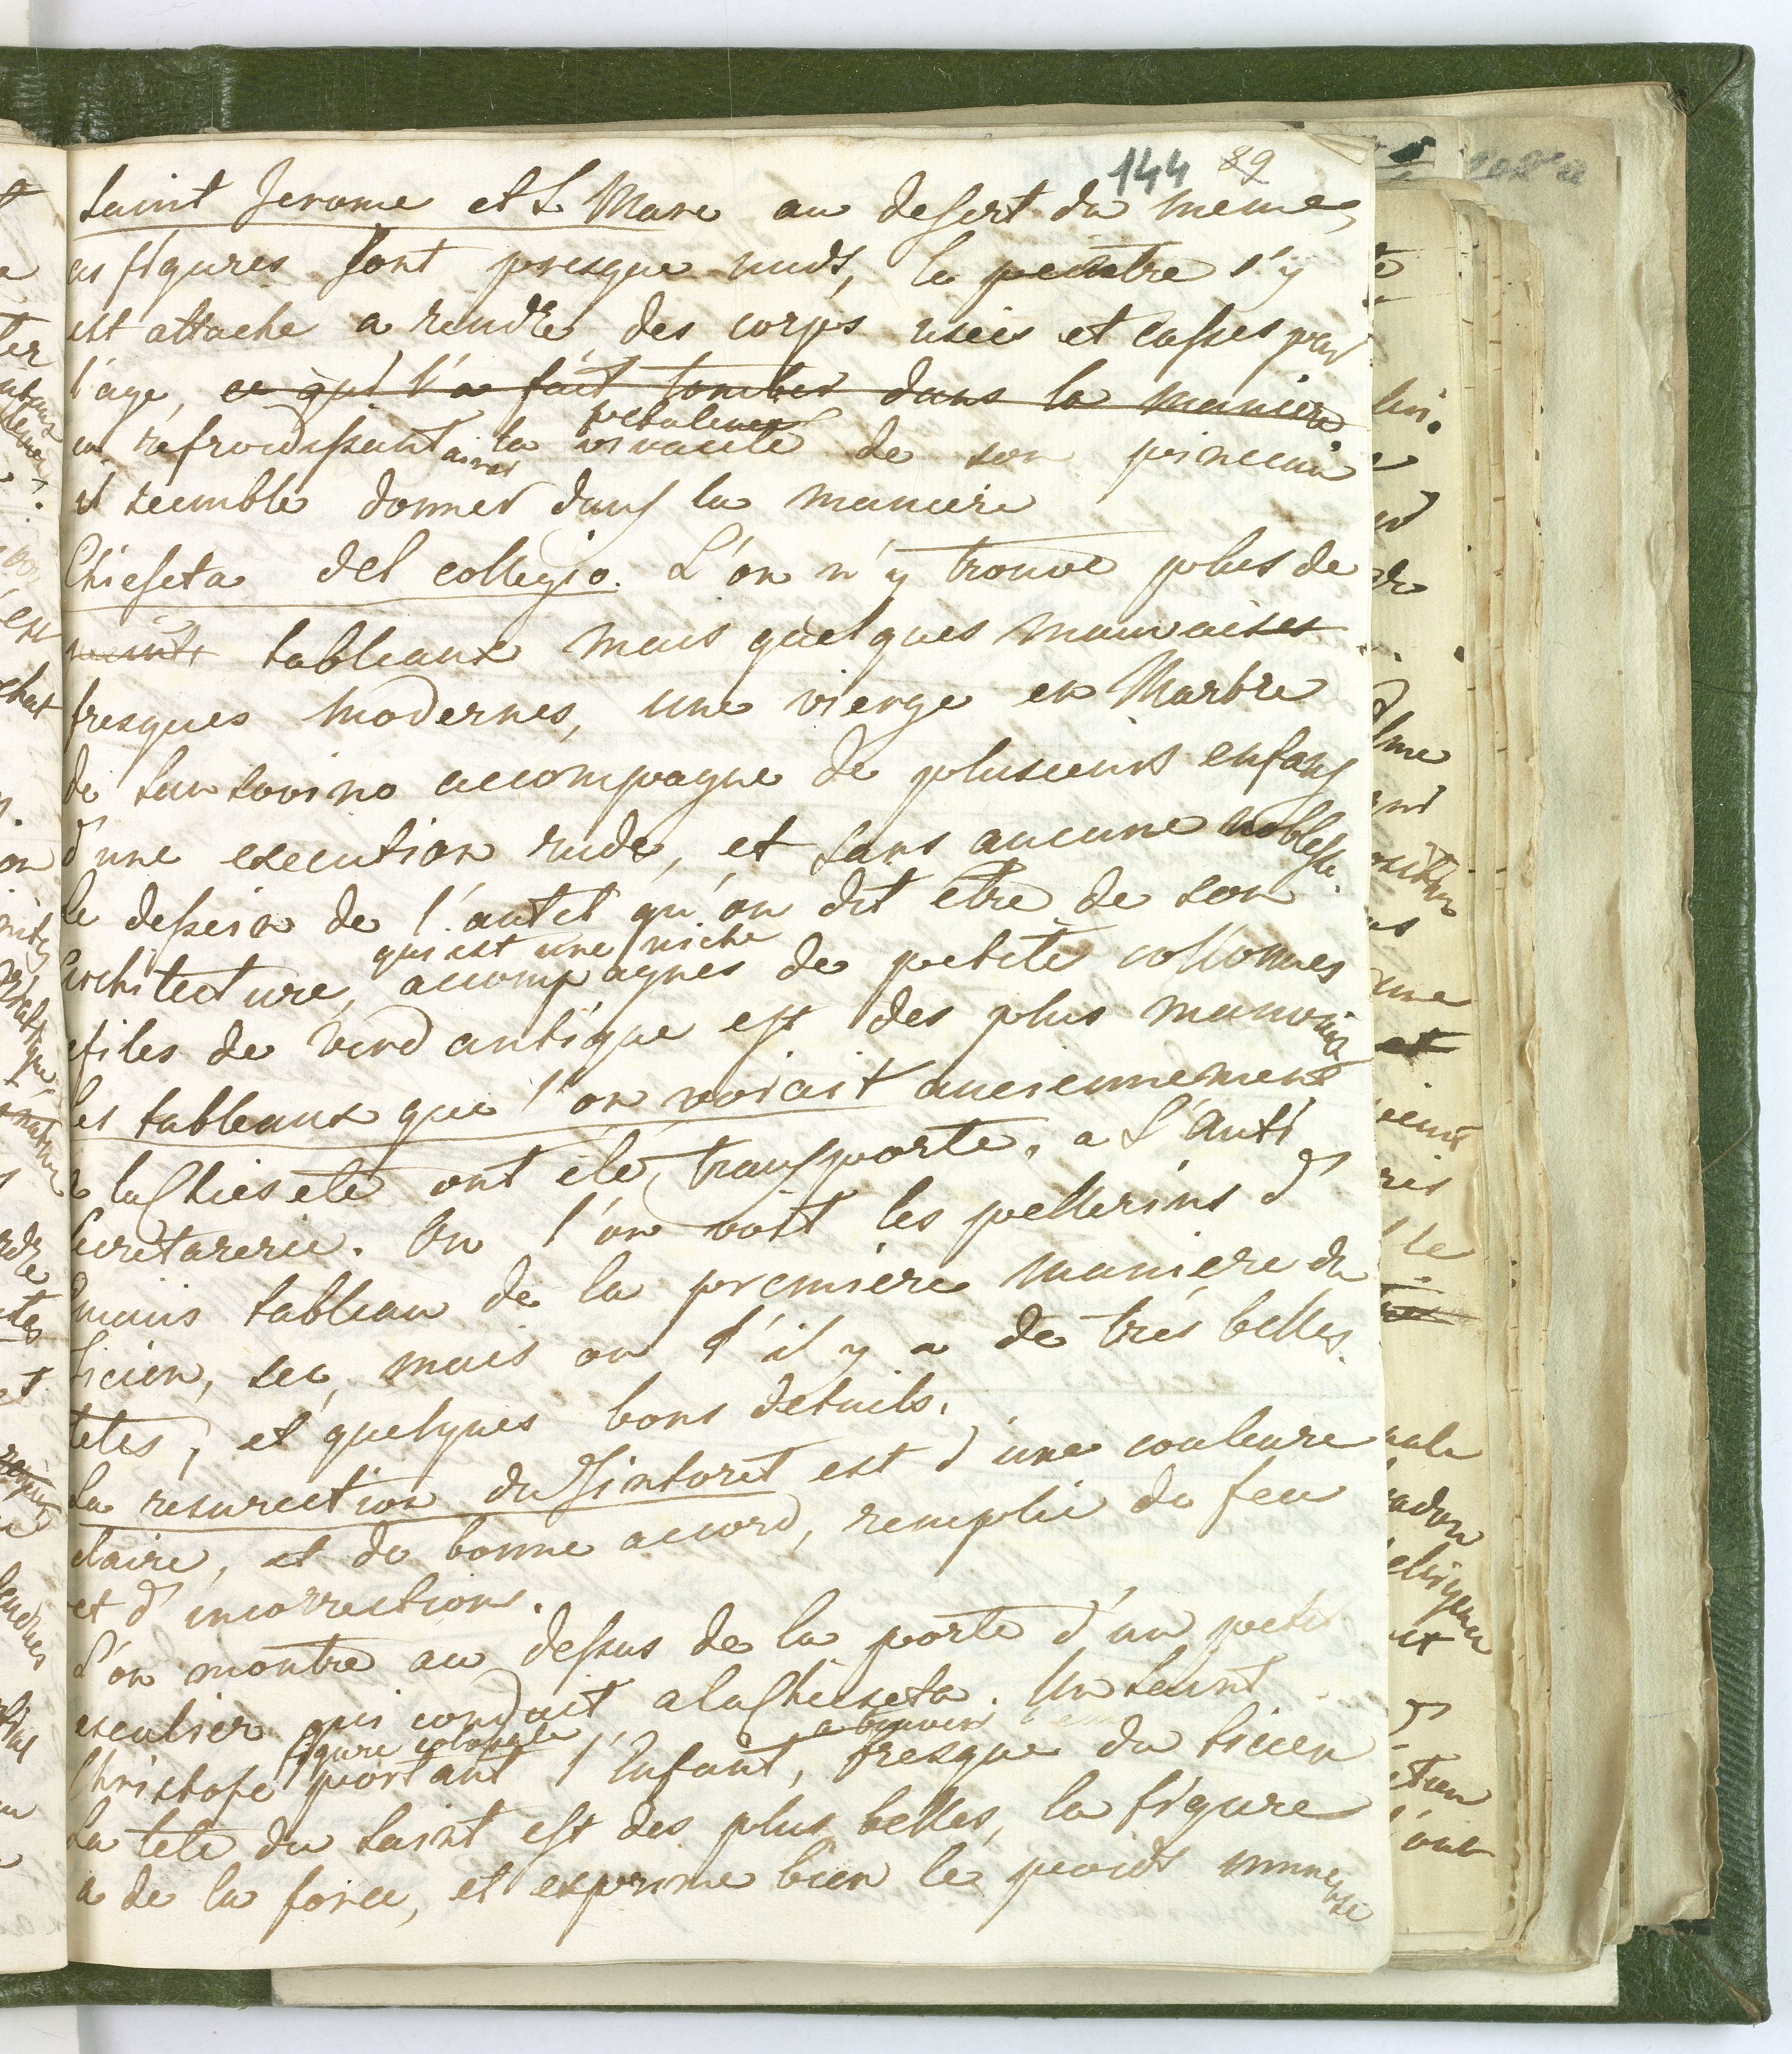 144 89
Saint Jerome et S. Marc au desert du meme,
ces figures sont presque nuds, le peintre s'y
est attache a rendre des corps usées et cassés par
l'age, ce qui l'a fait tomber dans la maniere
en refroidissant ainsi la petulence vivacité de son pinceau
il semble donner dans la maniere
Chieseta del collegio. L'on n'y trouve plus de
tableaux mais quelques mauvaises
fresques modernes, une vierge en Marbre
de Sansovino accompagne de plusieurs enfans
d'une execution rude, et sans aucune noblesse.
le dessein de l'autel qu'on dit etre de son
architecture, qui est une niche accompagnés de petites collonnes
efiles de verd antique est des plus mauvais
les tableaux que l'on voiait anciennement
a la Chiesete ont été transporte, a L'Anti
Secretarerie. On l'on voit les pellerins d'
Emaus tableau de la premiere maniere du
Ticien, sec, mais ou s'il y a de tres belles
tetes, et quelques bons details.
La resurection du Tintoret est d'une couleure
claire, et de bonne accord, remplie du feu
et d'incorrections.
L'on montre au dessus de la porte d'un petit
escalier qui conduit a la Chieseta. Un Saint
Christofe figure colossale portant l'Enfant, fresque du Ticien
La tete du Saint est des plus belles, la figure
a de la force, et exprime bien le poids immense